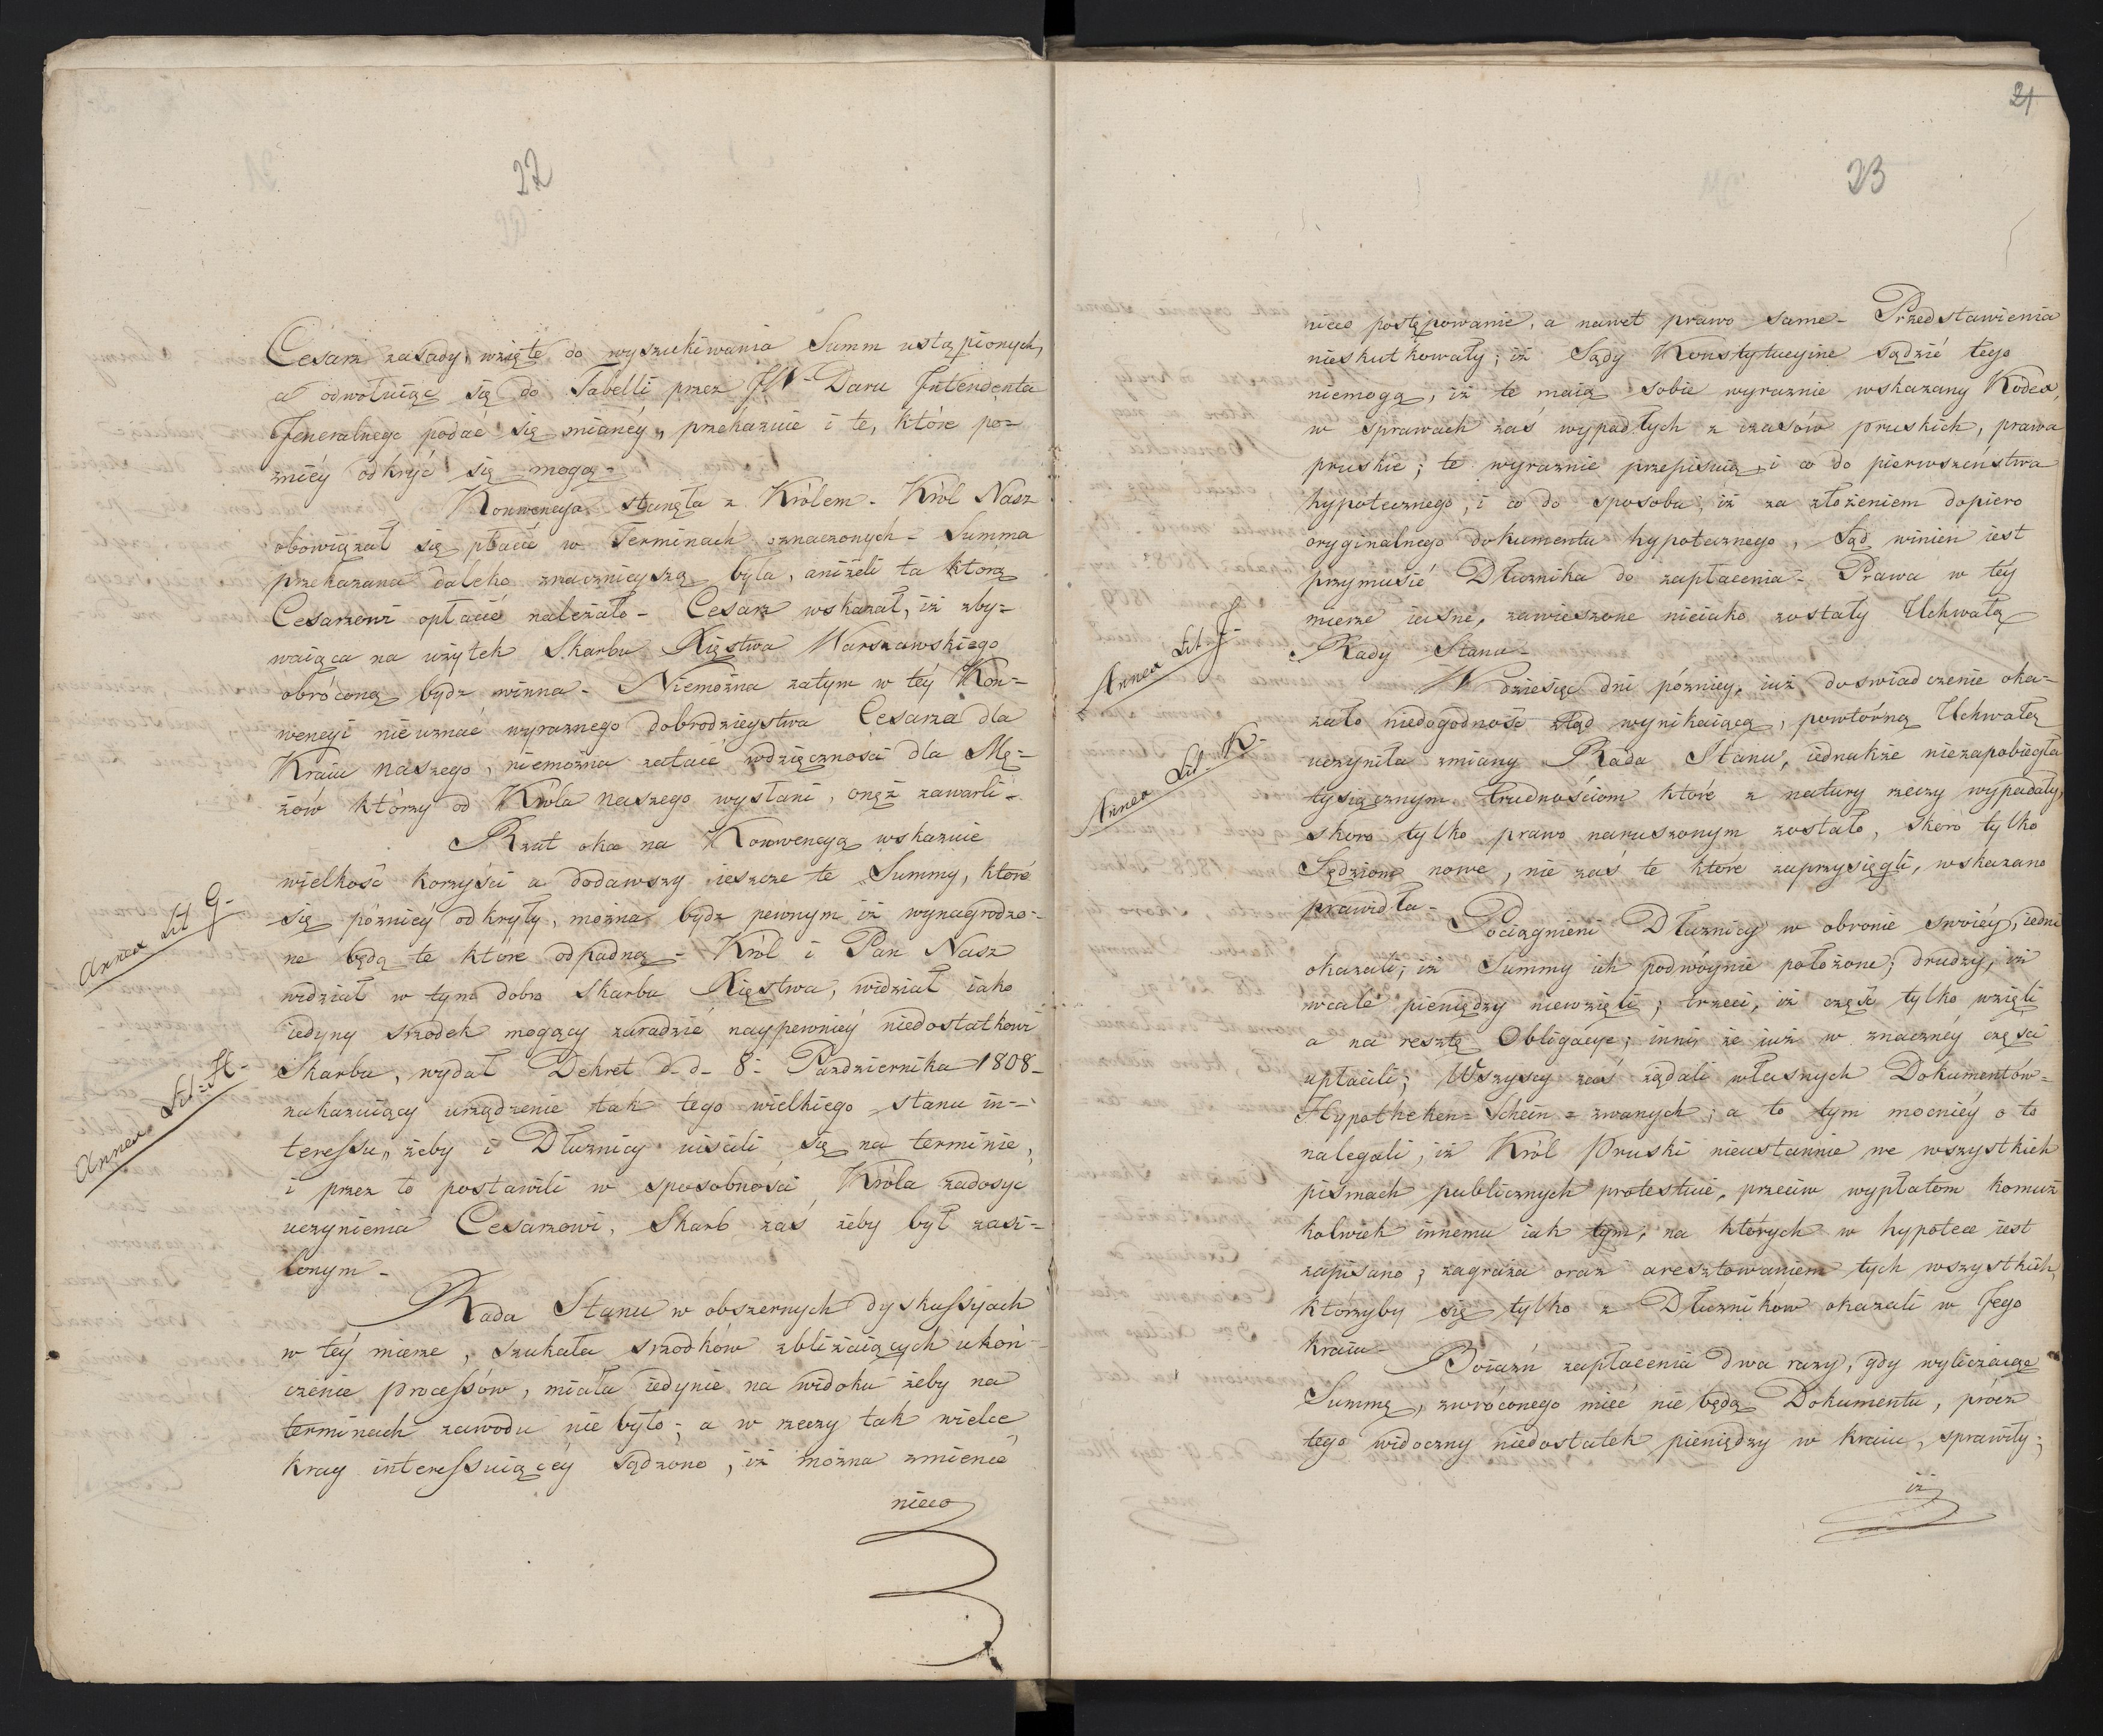 22
Cesarz zasady, wzięte do wyszukiwania Summ ustąpionych,
a odwołuiąc się do Tabelli przez JW Daru Intendenta
Jeneralnego podac się mianéy, przekazuie i te, które po=
zniéy odkryć się mogą -
Konwencya stanęła z Królem - Król Nasz
obowiązał się płacić w Terminach oznaczonych - Summa
przekazana daleko znacznieyszą była, aniżeli ta którą
Cesarzowi opłacić należało - Cesarz wskazał, iż zby=
waiąca na użytek Skarbu Xięstwa Warszawskiego
obróconą bydz winna - Niemożna zatym w téy Kon=
wencyi nieuznać wyraznego dobrodzieystwa Cesarza dla
Kraiu naszego, niemożna zataić wdzięczności dla Mę=
żów którzy od Króla naszego wysłani, onęż zawarli -
Rzut oka na Konwencyą wskazuie
wielkość korzyści a dodawszy ieszcze te Summy, które
Annex Lit G-
się pózniéy odkryły, można bydz pewnym iż wynagrodzo=
ne będą te które odpadną - Król i Pan Nasz
widział w tym dobro Skarbu Xięstwa, widział iako
iedyny srzodek mogący zaradzić naypewniéy niedostatkowi
Annex Lit: H-
Skarbu, wydał Dekret d. d. 8: Pazdziernika 1808 -
nakazuiący urządzenie tak tego wielkiego stanu in=
teressu, żeby i Dłużnicy uiścili się na terminie,
i przez to postawili w sposobności Króla zadosyc
uczynienia Cesarzowi, Skarb zaś żeby był zasi=
lonym -
Rada Stanu w obszernych dyskussyiach
w téy mierze, szukała srzodków zbliżaiących ukoń=
czenie processów, miała iedynie na widoku żeby na
terminach zawodu nie było; a w rzeczy tak wielce
kray interessuiącéy sądzono, iż można zmienić
nieco
21
23
nieco postępowanie, a nawet prawo same - Przedstawienia
nieskutkowały; iż Sądy Konstytucyine sądzić tego
niemogą, iż te maią sobie wyraznie wskazany Kodex,
w sprawach zaś wypadłych z czasów pruskich, prawa
pruskie; te wyraznie przepisuią, i co do pierwszeństwa
hypotecznego, i co do sposobu, iż za złożeniem dopiero
oryginalnego dokumentu hypotecznego, Sąd winien iest
przymusić Dłużnika do zapłacenia - Prawa w téy
mierze iasne, zawieszone nieiako zostały Uchwałą
Annex Lit. J-
Rady Stanu -
W dziesięc dni pózniey, iuż doswiadczenie oka=
zało niedogodność ztąd wynikaiącą, powtórną Uchwałą
Annex Lit K-
uczyniła zmiany Rada Stanu, iednakże niezapobiegła
tysiącznym trudnościom które z natury rzeczy wypadały,
skoro tylko prawo naruszonym zostało, skoro tylko
Sędziom nowe, nie zaś te które zaprzysięgli, wskazano
prawidła -
Pociągnieni Dłużnicy w obronie swoiéy, iedni
okazali, iż Summy ich podwóynie położone; drudzy, iż
wcale pieniędzy niewzięli; trzeci, iż część tylko wzięli
a na resztę Obligacye; inni że iuż w znacznéy części
upłacili; Wszyscy zaś żądali własnych Dokumentów=
Hypotheken=Schein=zwanych; a to tym mocniéy o to
nalegali, iż Król Pruski nieustannie we wszystkich
pismach publicznych protestuie, przeciw wypłatom komuż
kolwiek innemu iak tym, na których w hypotece iest
zapisano; zagraża oraz aresztowaniem tych wszystkich,
którzyby się tylko z Dłużników okazali w Jego
kraiu -
Boiazń zapłacenia dwa razy, gdy wyliczaiąc
Summę, zwróconego mieć nie będą Dokumentu, prócz
tego widoczny niedostatek pieniędzy w kraiu, sprawiły;
iż